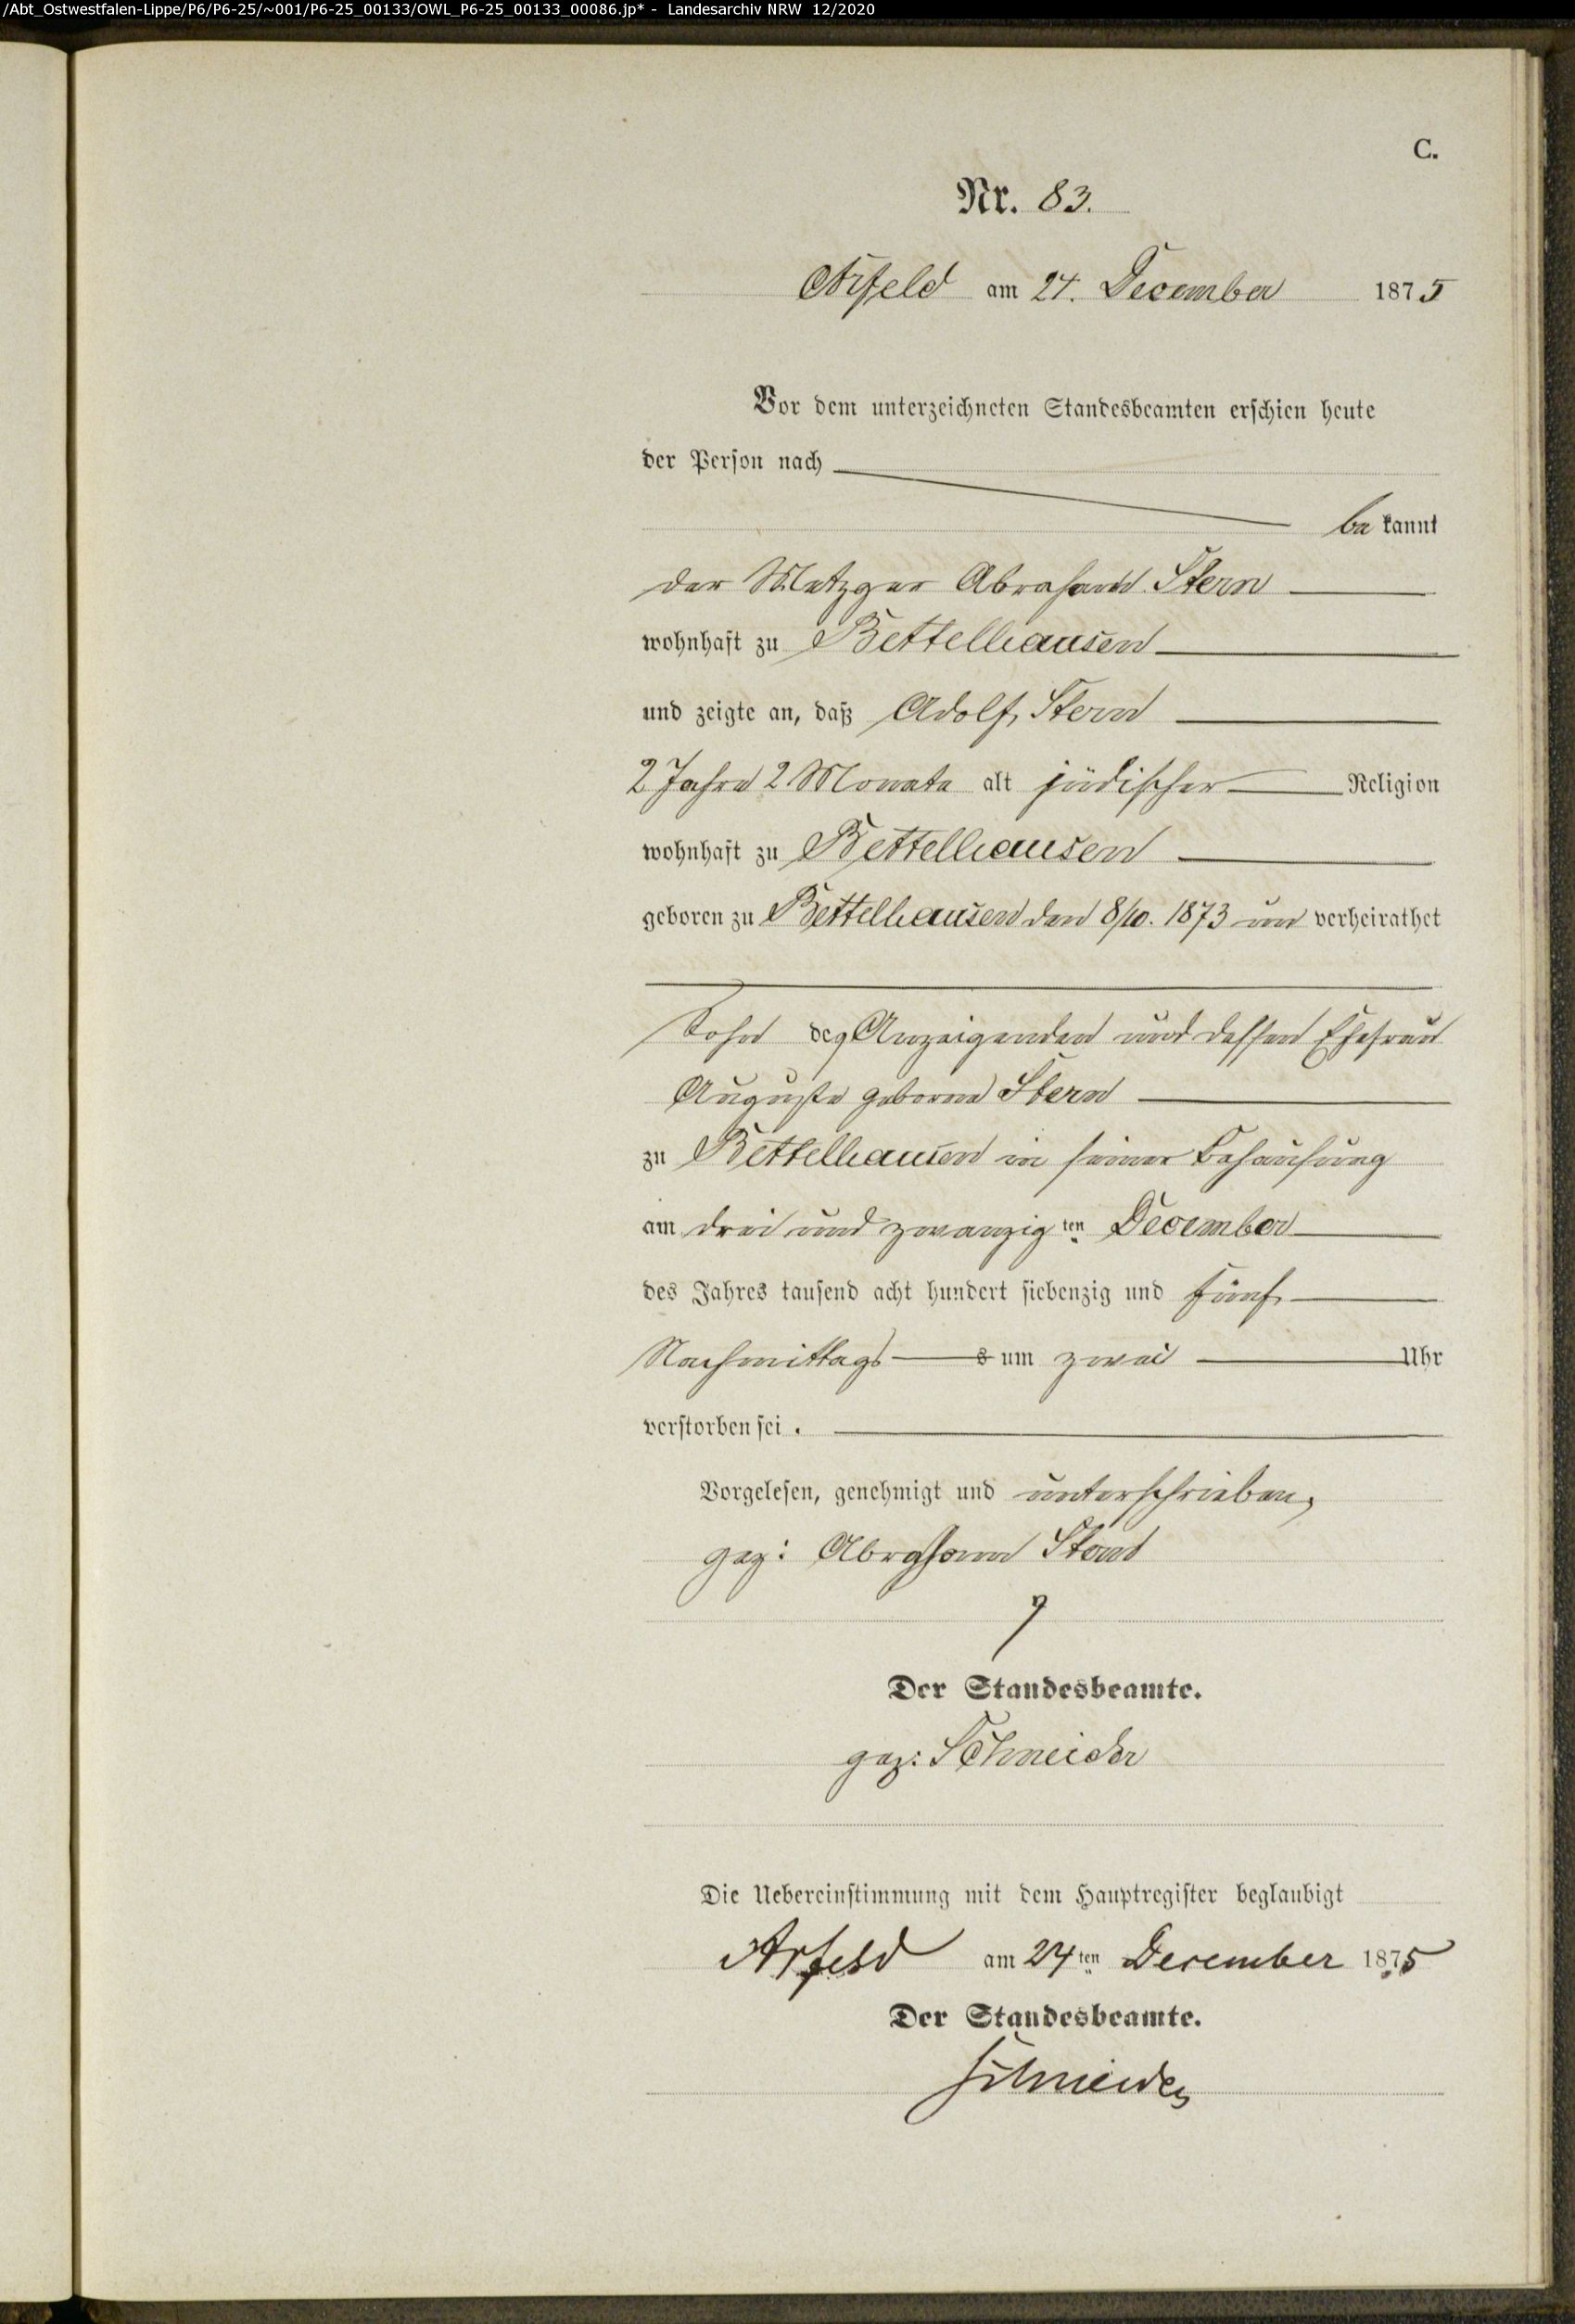 /Abt_Ostwestfalen-Lippe/P6/P6-25/~001/P6-25_00133/OWL_P6-25_00133_00086.jp* - Landesarchiv NRW 12/2020
C.
Nr. 83.
Arfeld am 24. December 1875
Vor dem unterzeichneten Standesbeamten erschien heute
der Person nach
bekannt
der Metzger Abraham Stern
wohnhaft zu Bettelhausen
und zeigte an, daß Adolf Stern
2 Jahre 2 Monate alt jüdischer Religion
wohnhaft zu Bettelhausen
geboren zu Bettelhausen den 8/10. 1873 unverheirathet
Sohn des Anzeigenden und dessen Ehefrau
Auguste geborne Stern
zu Bettelhausen in seiner Behausung
am drei und zwanzigten December
des Jahres tausend acht hundert siebenzig und fünf
Nachmittags um zwei Uhr
verstorben sei.
Vorgelesen, genehmigt und unterschrieben,
gez: Abraham Stern
Der Standesbeamte.
gez: Schneider
Die Uebereinstimmung mit dem Hauptregister beglaubigt
Arfeld am 24ten December 1875
Der Standesbeamte.
Schneider